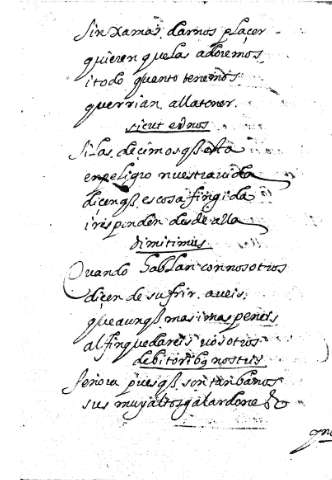 sin xamas darnos plaçer
quieren que las adoremos
i todo quanto tenemos
querrian alla tener
sicut et nos
si las decimos q̃ esta
en peligro nuestra vida
dicen q̃ es cosa fingida
i responden desde alla
dimitimus
Quando hablan con nosotros
dicen de sufrir aveis
que aunq̃ mas i mas peneis
al fin quedareis vosotros
debitoribq nostris
señora pues q̃ son tan banos
sus muy altos galardone